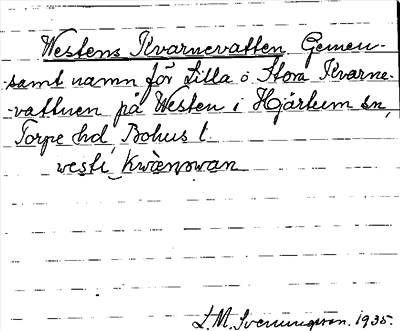 Westens Kvarnevatten Gemen-
samt namn för Lilla o Stora Kvarne-
-vattnen på Westen i Hjärtum sn,
Torpe hd Bohus l.
L.M. Svenungsson. 1935.